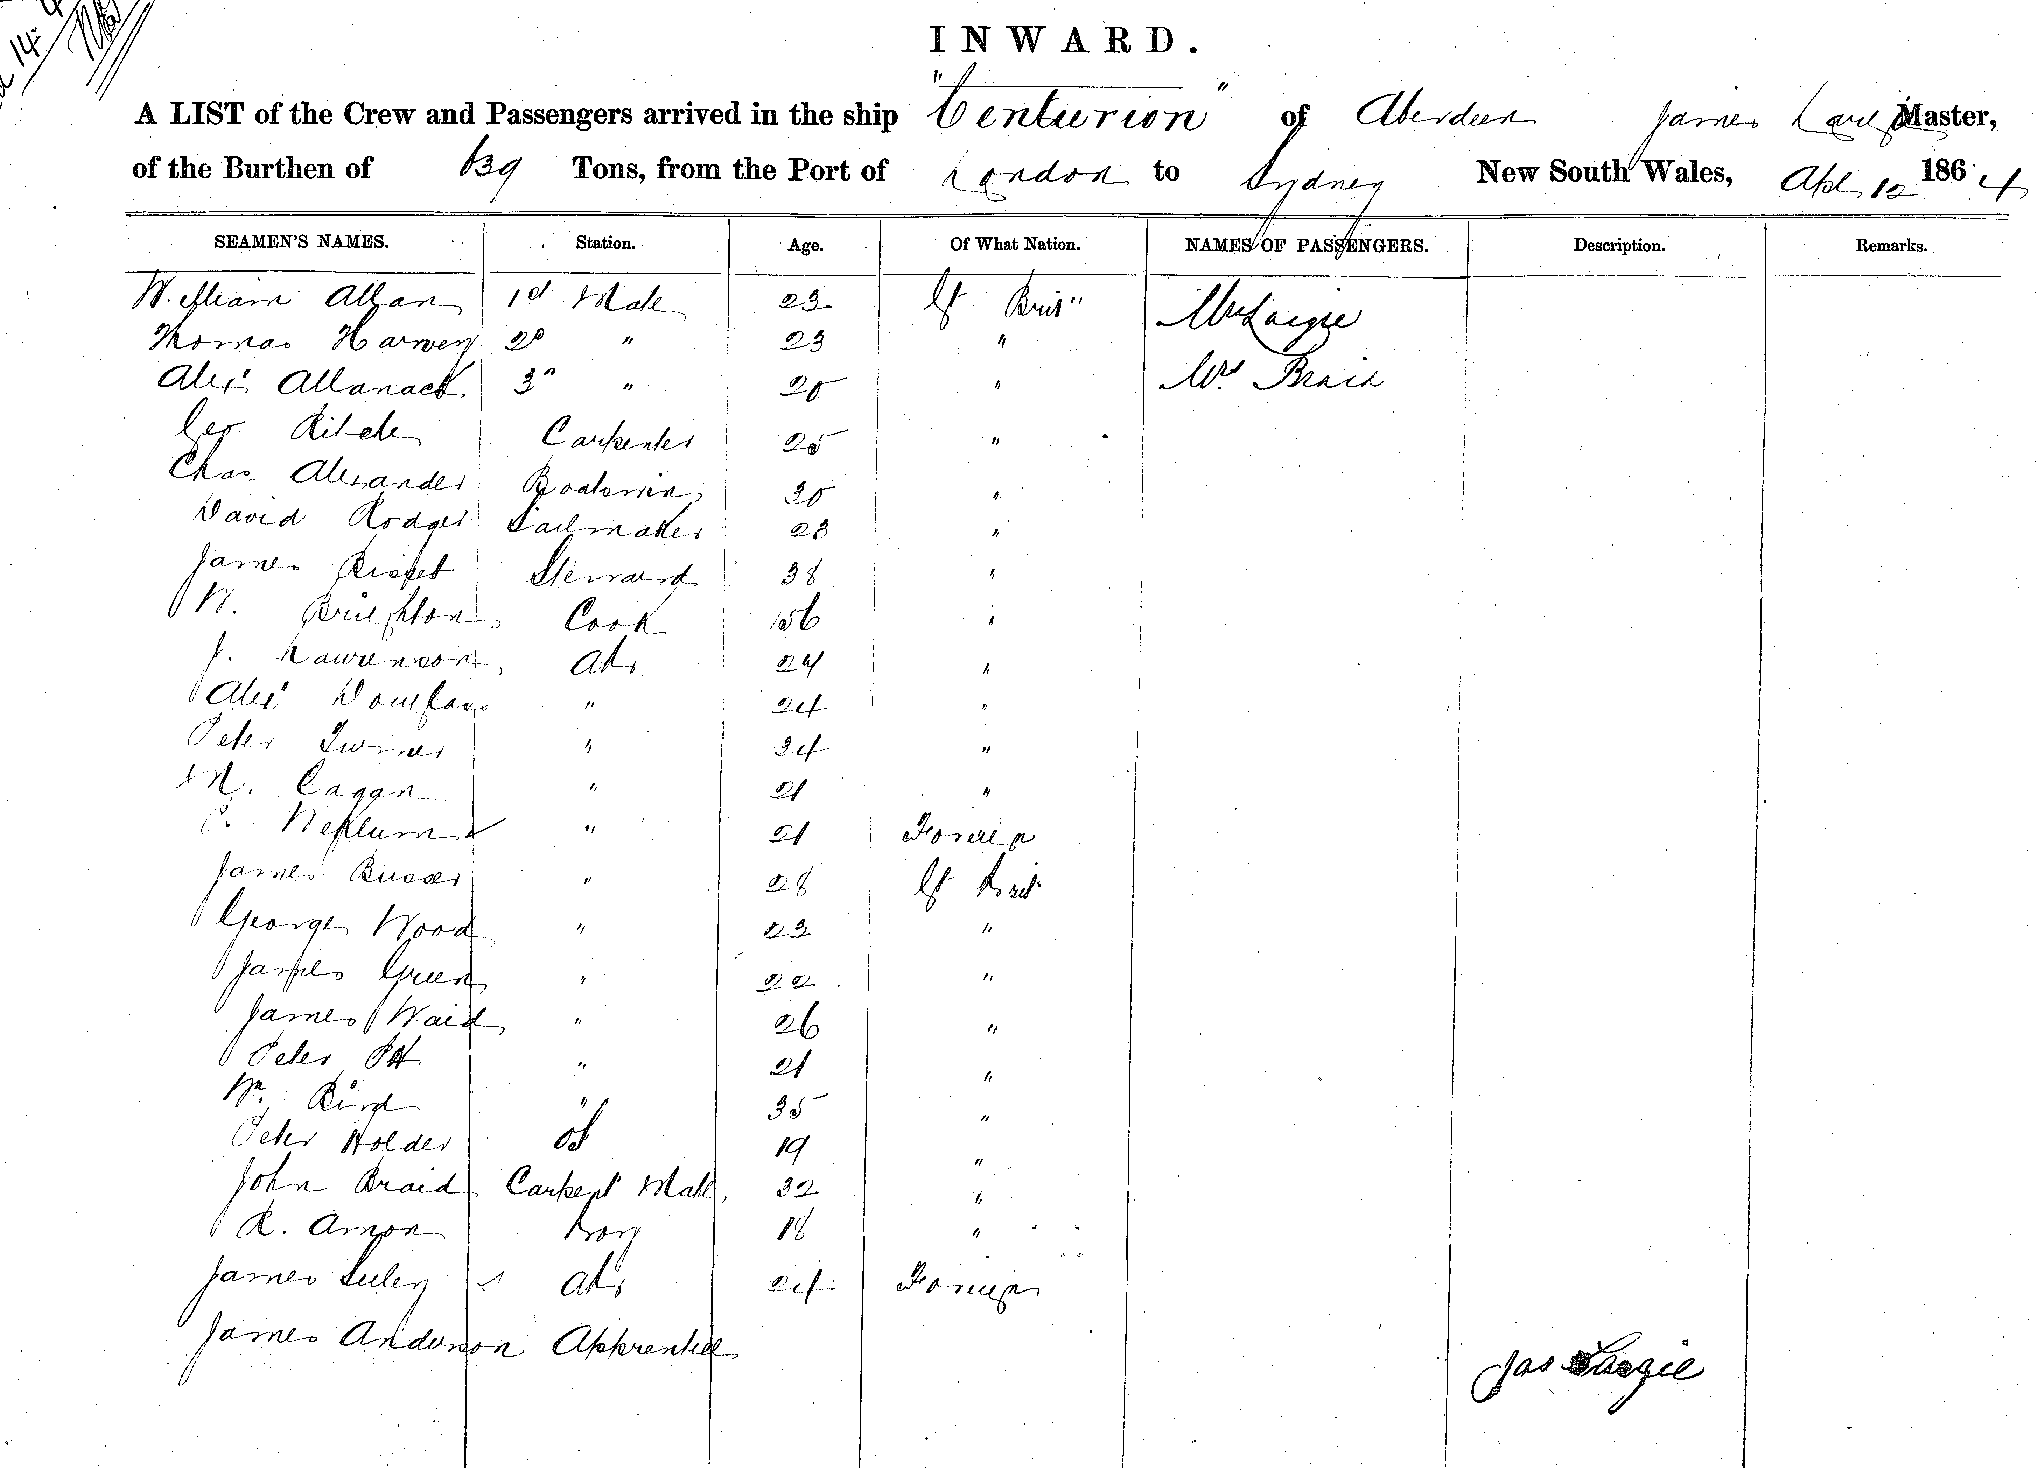 14
INWARD.
A LIST of the Crew and Passengers arrived in the ship "Centurion" of Aberdeen James Largie Master,
of the Burthen of 639 Tons, from the Port of London to Sydney New South Wales, Apl 12 1864
SEAMEN'S NAMES. Station. Age. Of What Nation. NAMES OF PASSENGERS. Description. Remarks.
William Allan 1st Mate 23 Gt Brit" Mrs Largie
Thomas Harvey 2d " 23 "
Alexr Allanach 3d " 20 " Mrs Braid
Geo Ritchie Carpenter 25 "
Chas Alexander Boatswin 30 "
David Rodger Sailmaker 23 "
James Bisset Steward 38 "
W. Brighton Cook 56 "
J. Lawrenson Abs 24 "
Alexr Douglas " 24 "
Peter Turner " 34 "
Cagan " 21 "
" 21 Foreign
James " 28 Gt Brit
George Wood " 23 "
James Green " 22 "
James Waid " 26 "
Peter " 21 "
Wm Bird " 35 "
Peter Holder OS 19 "
John Braid Carpent Mate 32 "
R. Arnon boy 18 "
James Abs 24 Foreign
James Anderson Apprentice
Jas Largie